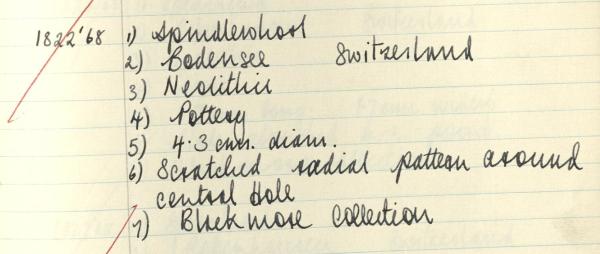 1822'68 1) Spindlewhorl
2) Bodensee Switzerland
3) Neolithic
4) Pottery
5) 4.3 cms. diam.
6) Scratched radial pattern around
central Hole
7) Blackmore Collection